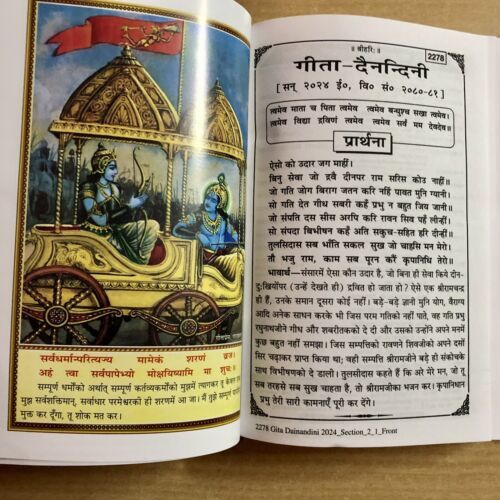 सर्वधर्मान्परित्यज्य मामेकं शरणं व्रज।
अहं त्वा सर्वपापेभ्यो मोक्षयिष्यामि मा शुचः॥
सम्पूर्ण धर्मोंको अर्थात् सम्पूर्ण कर्तव्यकर्मोंको मुझमें त्यागकर तू केवल
मुझ सर्वशक्तिमान्, सर्वाधार परमेश्वरकी ही शरणमें आ जा। मैं तुझे सम्पूर्ण
मुक्त कर दूँगा, तू शोक मत कर।
॥ श्रीहरिः ॥
2278
गीता-दैनन्दिनी
[ सन् २०२४ ई०, वि० सं० २०८०-८१ ]
त्वमेव माता च पिता त्वमेव त्वमेव बन्धुश्च सखा त्वमेव।
त्वमेव विद्या द्रविणं त्वमेव त्वमेव सर्वं मम देवदेव॥
प्रार्थना
ऐसो को उदार जग माहीं।
बिनु सेवा जो द्रवै दीनपर राम सरिस कोउ नाहीं॥
जो गति जोग बिराग जतन करि नहिं पावत मुनि ग्यानी।
सो गति देत गीध सबरी कहँ प्रभु न बहुत जिय जानी॥
जो संपति दस सीस अरपि करि रावन सिव पहँ लीन्हीं।
सो संपदा बिभीषन कहँ अति सकुच-सहित हरि दीन्हीं॥
तुलसिदास सब भाँति सकल सुख जो चाहसि मन मेरो।
तौ भजु राम, काम सब पूरन करैं कृपानिधि तेरो॥
भावार्थ—संसारमें ऐसा कौन उदार है, जो बिना ही सेवा किये दीन-
दुःखियोंपर (उन्हें देखते ही) द्रवित हो जाता हो? ऐसे एक श्रीरामचन्द्र
ही हैं, उनके समान दूसरा कोई नहीं। बड़े-बड़े ज्ञानी मुनि योग, वैराग्य
आदि अनेक साधन करके भी जिस परम गतिको नहीं पाते, वह गति प्रभु
रघुनाथजीने गीध और शबरीतकको दे दी और उसको उन्होंने अपने मनमें
कुछ बहुत नहीं समझा। जिस सम्पत्तिको रावणने शिवजीको अपने दसों
सिर चढ़ाकर प्राप्त किया था; वही सम्पत्ति श्रीरामजीने बड़े ही संकोचके
साथ विभीषणको दे डाली। तुलसीदास कहते हैं कि अरे मेरे मन, जो तू
सब तरहसे सब सुख चाहता है, तो श्रीरामजीका भजन कर। कृपानिधान
प्रभु तेरी सारी कामनाएँ पूरी कर देंगे।
2278 Gita Dainandini 2024_Section_2_1_Front